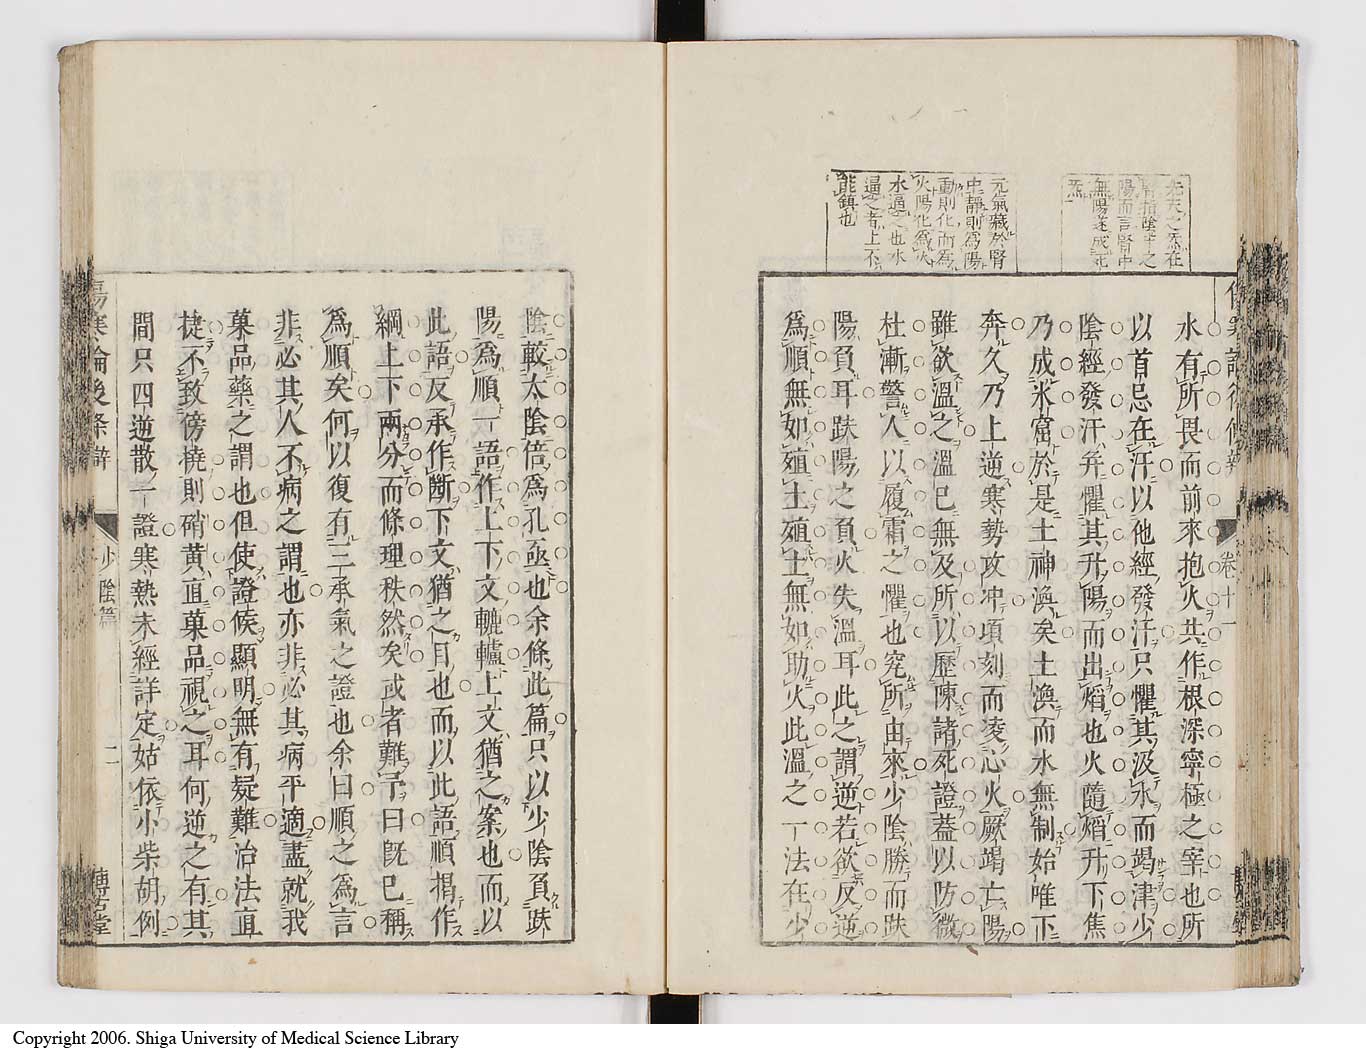 先天之炁在
腎指陰中之
陽而言腎中
無陽遂成死
炁
元氣藏於腎
中靜則為陽
動則化而為
火陽化為火
水逼之也水
逼之者上不
能鎮也
水有所畏而前來抱火共作根深寧極之宰也所
以首忌在汗以他經發汗只懼其汲水而竭津少
陰經發汗并懼其升陽而出熖也火隨熖升下焦
乃成氷窟於是土神渙矣土渙而水無制始唯下
奔久乃上逆寒勢攻冲頃刻而凌心火厥竭亡陽
雖欲溫之溫已無及所以歷陳諸死證葢以防微
杜漸警人以履霜之懼也究所由來少陰勝而趺
陽負耳趺陽之負火失溫耳此之謂逆若欲反逆
為順無如殖土殖土無如助火此溫之一法在少
卷十一
陰較太陰倍為孔亟也余條此篇只以少陰負趺
陽為順一語作上下文轆轤上文猶之案也而以
此語反承作斷下文猶之目也而以此語順揭作
綱上下兩分而條理秩然矣或者難予曰旣已稱
為順矣何以復有三承氣之證也余曰順之為言
非必其人不病之謂也亦非必其病平適盡就我
菓品藥之謂也但使證候顯明無有疑難治法直
捷不致傍撓則硝黃直菓品視之耳何逆之有其
間只四逆散一證寒熱未經詳定姑依小柴胡例
傷寒論後條辯
少陰篇
二